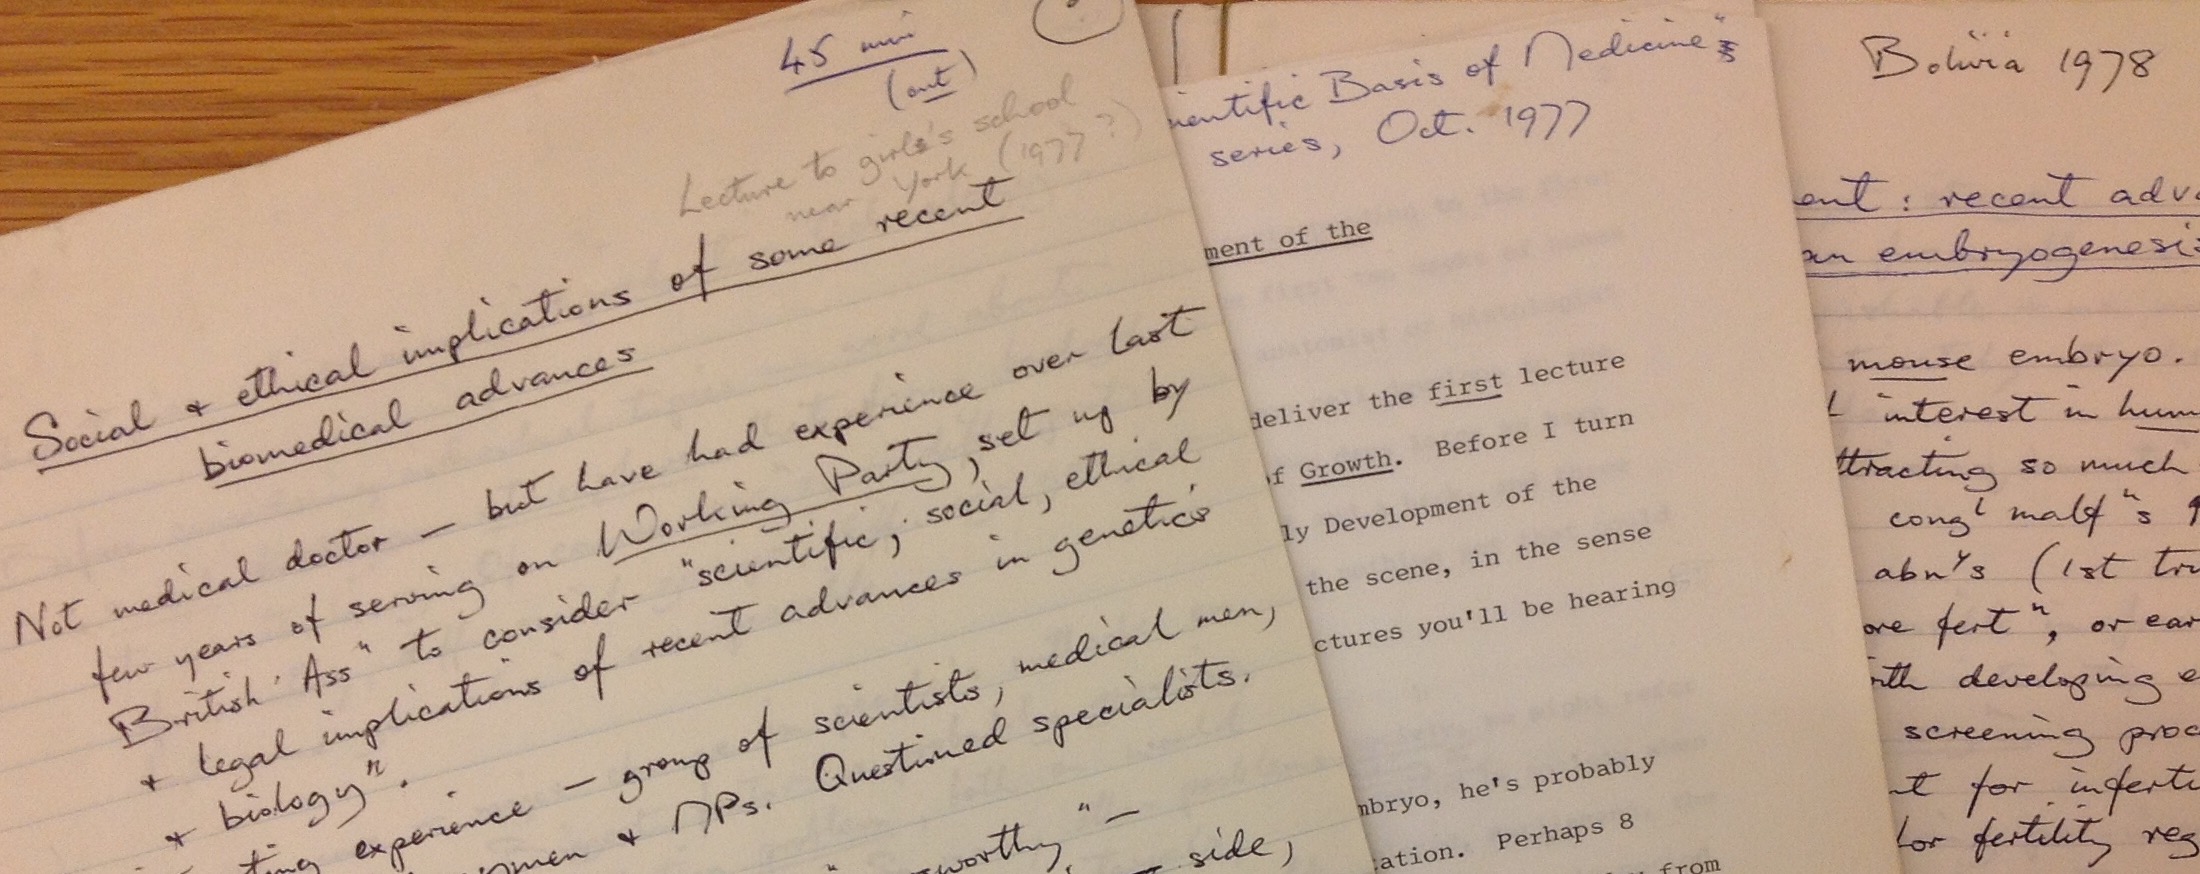 45 min
(out)
Lecture to girls's school
near York (1977?)
Social + ethical implications of some recent
biomedical advances
Not medical doctor – but have had experience over last
few years of serving on Working Party, set up by
British Assn to consider "scientific, social, ethical
+ legal implications of recent advances in genetics
+ biology".
experience – group of scientists, medical men,
+ MPs. Questioned specialists.
worthy" –
side,
Basis of Medicine"
series, Oct. 1977
ment of the
deliver the first lecture
of Growth. Before I turn
ly Development of the
the scene, in the sense
ctures you'll be hearing
mbryo, he's probably
cation. Perhaps 8
from
Bolivia 1978
ent : recent adv
an embryogenesis
mouse embryo.
interest in hum
ttracting so much
congl malfns
abnys (1st tri
ore fertn, or ear
ith developing e
screening proc
t for inferti
for fertility reg